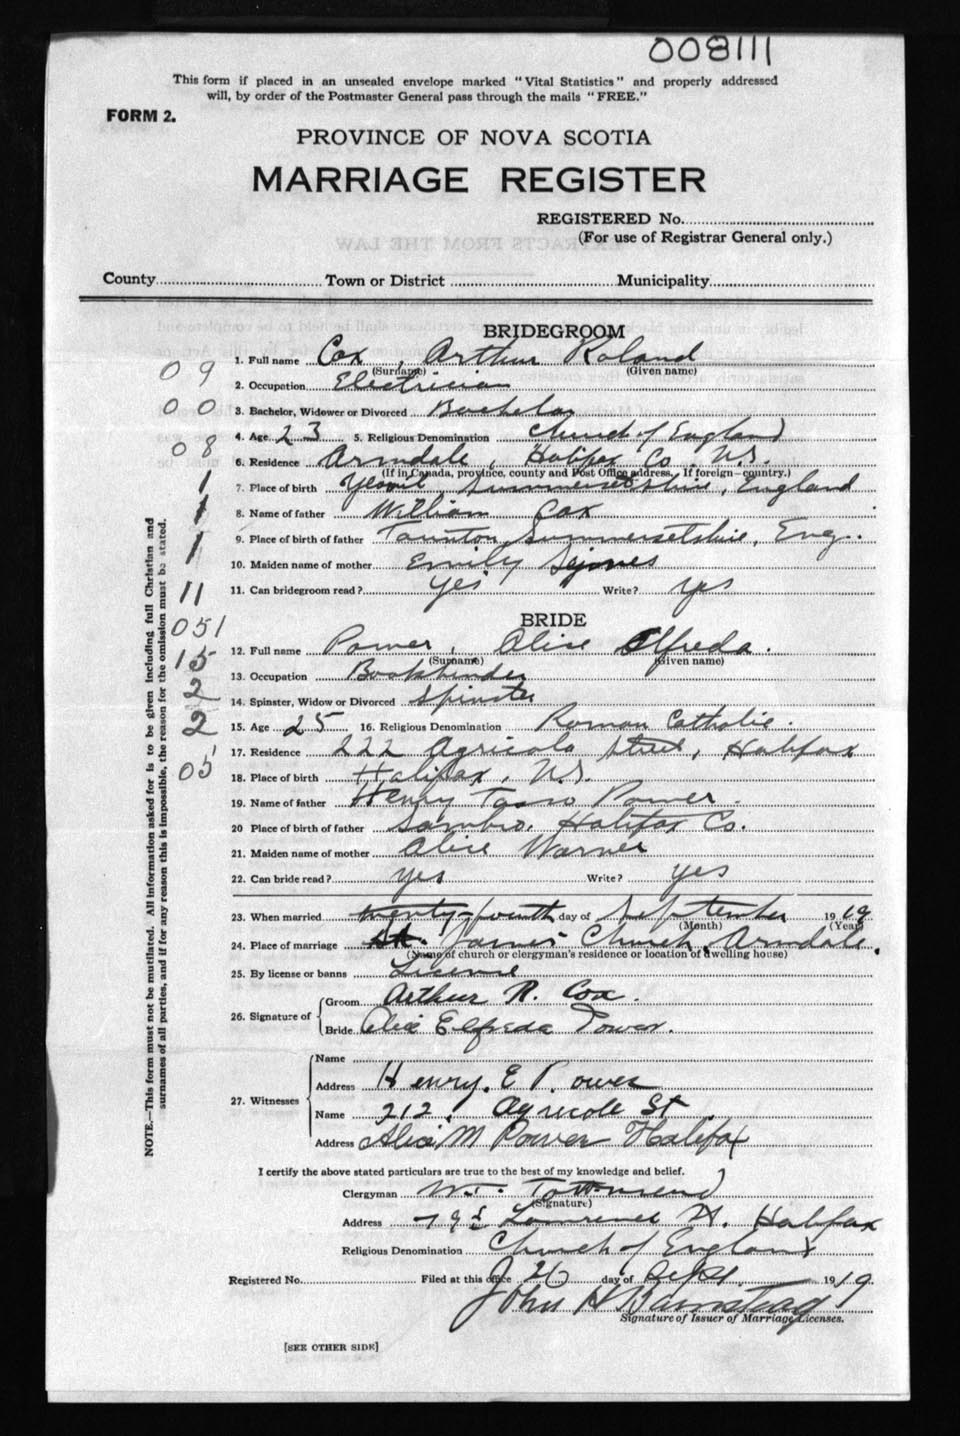 008111
This form if placed in an unsealed envelope marked "Vital Statistics" and properly addressed
will, by order of the Postmaster General pass through the mails "FREE."
FORM 2.
PROVINCE OF NOVA SCOTIA
MARRIAGE REGISTER
REGISTERED No.
(For use of Registrar General only.)
County Town or District Municipality
BRIDEGROOM
1. Full name Cox, Arthur Roland
(Surname) (Given name)
09
2. Occupation Electrician
00
3. Bachelor, Widower or Divorced Bachelor
4. Age 23 5. Religious Denomination Church of England
08
6. Residence Armdale, Halifax Co. N.S.
(If in Canada, province, county and Post Office address. If foreign—country.)
1
7. Place of birth Yeovil, Summersetshire, England
1
8. Name of father William Cox
1
9. Place of birth of father Taunton, Summersetshire, Eng.
10. Maiden name of mother Emily
11
11. Can bridegroom read? yes Write? yes
BRIDE
051
12. Full name Power, Alice Elfreda.
(Surname) (Given name)
15
13. Occupation Bookbinder
2
14. Spinster, Widow or Divorced Spinster
2
15. Age 25 16. Religious Denomination Roman Catholic.
17. Residence 222 Agricola Street, Halifax
05
18. Place of birth Halifax, N.S.
19. Name of father Henry Power.
20 Place of birth of father Sambro, Halifax Co.
21. Maiden name of mother Alice Warner
22. Can bride read? yes Write? yes
23. When married twenty-fourth day of September 1919
(Month) (Year)
24. Place of marriage St. James Church, Armdale.
(Name of church or clergyman's residence or location of dwelling house)
25. By license or banns License
26. Signature of Groom Arthur R. Cox.
Bride Alice Elfreda Power.
27. Witnesses
Name
Address Henry. E Power
Name 212, Agricole St.
Address Alice M Power Halifax
I certify the above stated particulars are true to the best of my knowledge and belief.
Clergyman Townsend
(Signature)
Address Lawrence St. Halifax
Religious Denomination Church of England
Registered No. Filed at this office 26 day of Sept. 1919.
John H
Signature of Issuer of Marriage Licenses.
[SEE OTHER SIDE]
NOTE.—This form must not be mutilated. All information asked for is to be given including full Christian and
surnames of all parties, and if for any reason this is impossible, the reason for the omission must be stated.